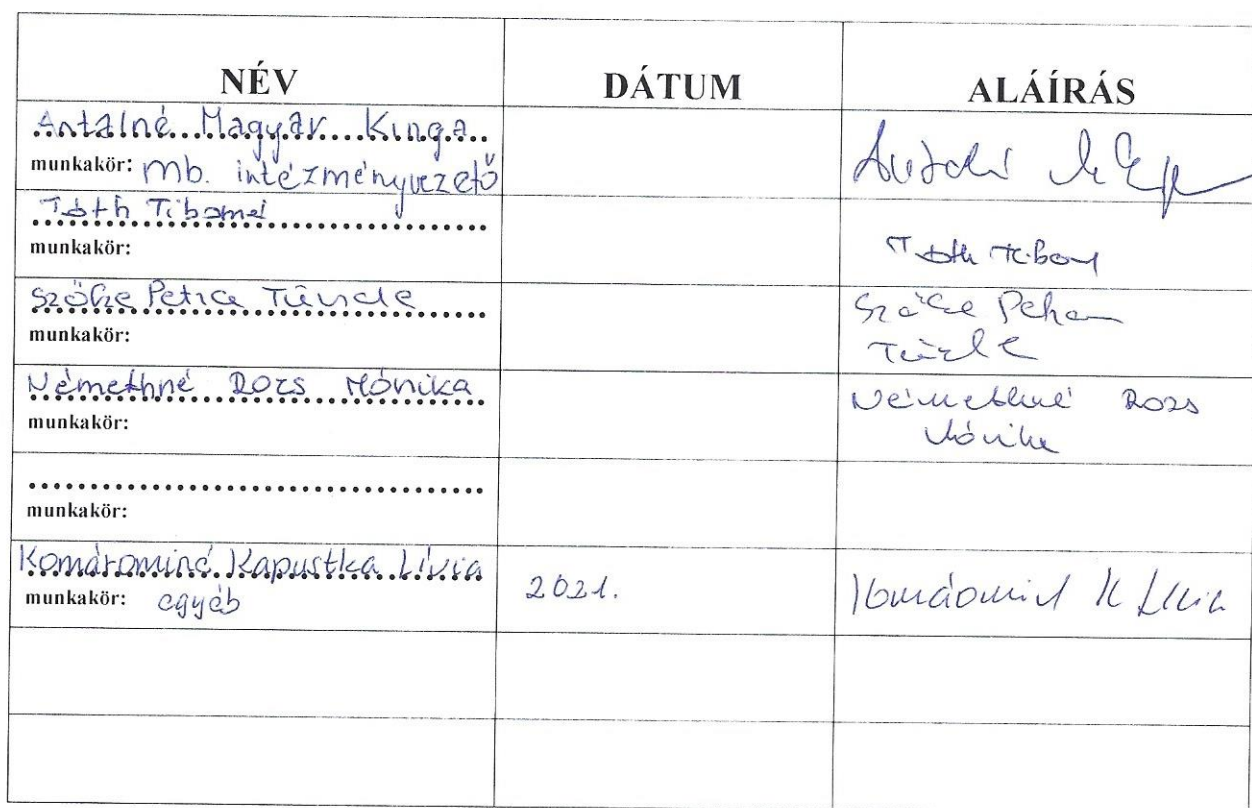 NÉV DÁTUM ALÁÍRÁS
Antalné Magyar Kinga
munkakör: mb. intézményvezető
Tóth Tiborné
munkakör:
Tóth Tiborné
Szőke Petra Tünde
munkakör:
Szőke Petra
Tünde
Némethné Rozs Mónika
munkakör:
Némethné Rozs
Mónika
munkakör:
Komárominé Kapustka Lívia
munkakör: egyéb
2021.
Komárominé K Lívia